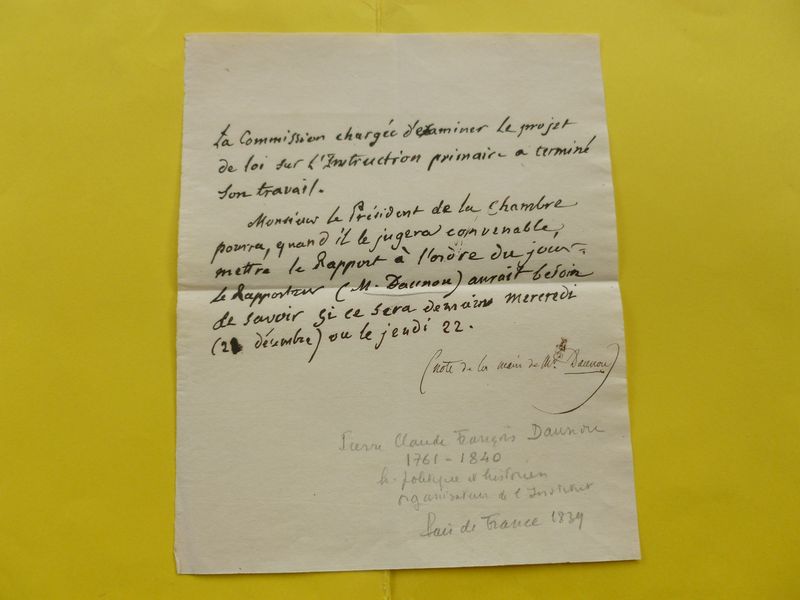 La Commission chargée d'examiner le projet
de loi sur L'Instruction primaire a terminé
son travail.
Monsieur le Président de la Chambre
pourra, quand il le jugera convenable,
mettre le Rapport à l'ordre du jour-
Le Rapporteur (M. Daunou) aurait besoin
de savoir si ce sera demain mercredi
(21 décembre) ou le jeudi 22.
(note de la main de Mr. Daunou)
Pierre Claude François Daunou
1761 - 1840
h. politique et historien
organisateur de l'Institut
Pair de France 1839